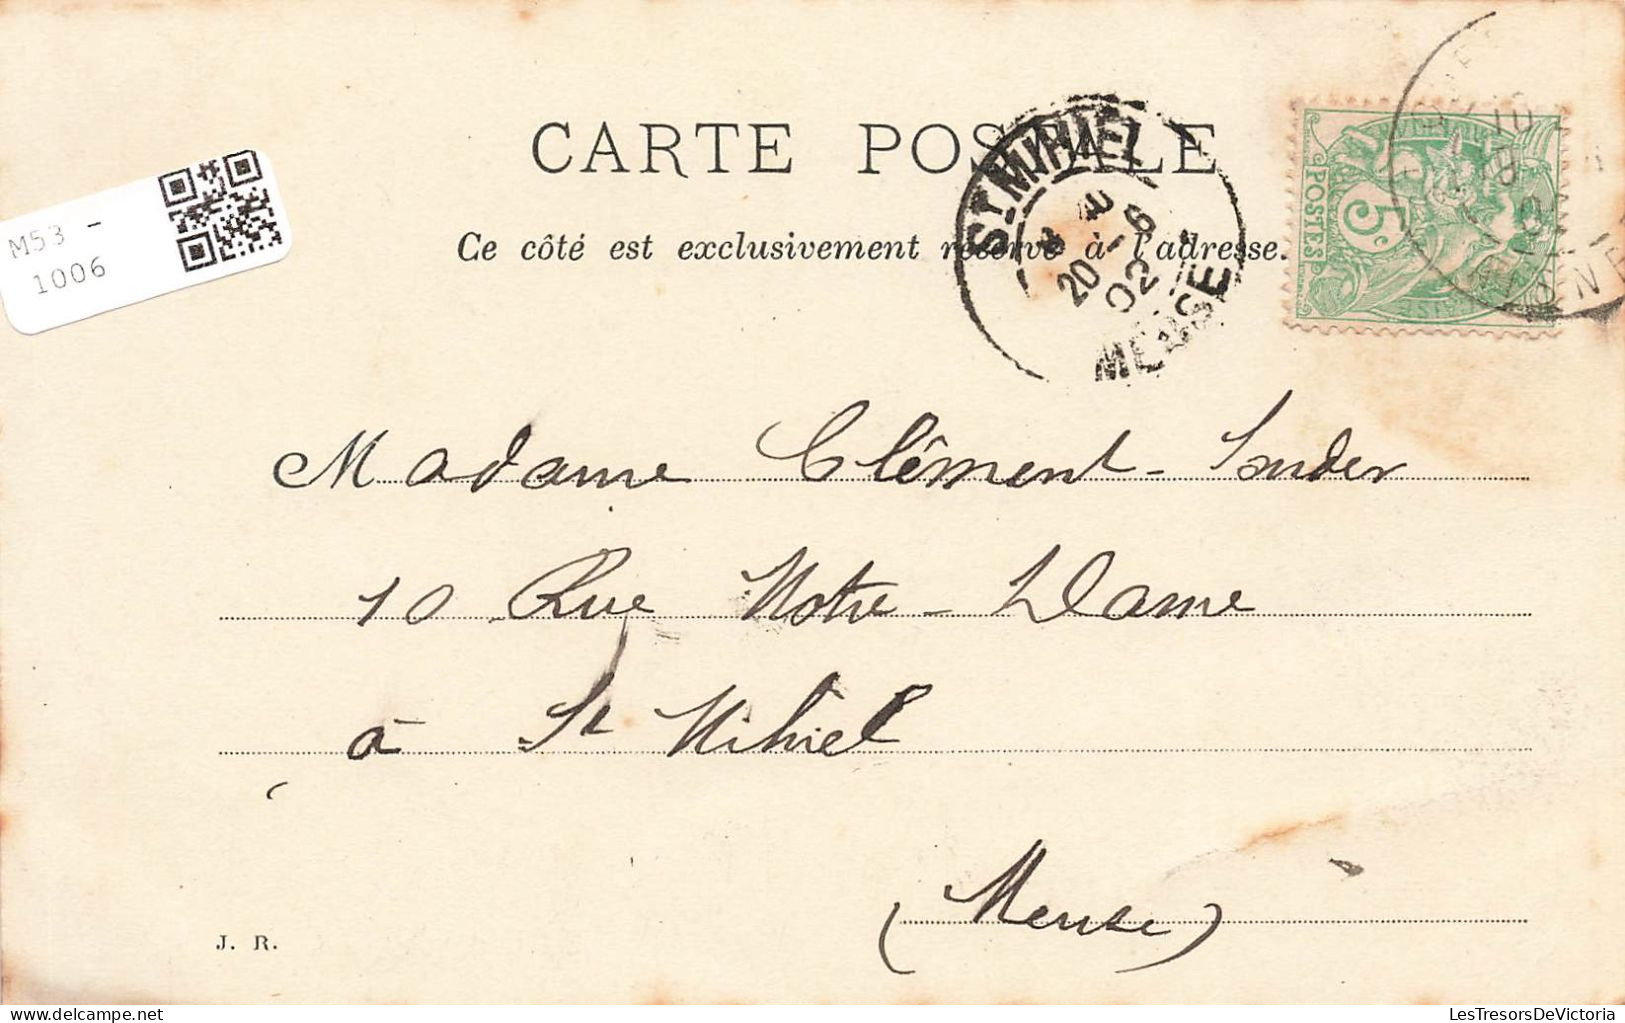 CARTE POSTALE
Ce côté est exclusivement réservé à l'adresse.
M53 -
1006
ST MIHIEL
20 - 6
02
MEUSE
5c
POSTES
Madame Clément-
10 Rue Notre-Dame
à St Mihiel
(Meuse)
J. R.
LesTresorsDeVictoria
delcampe.net